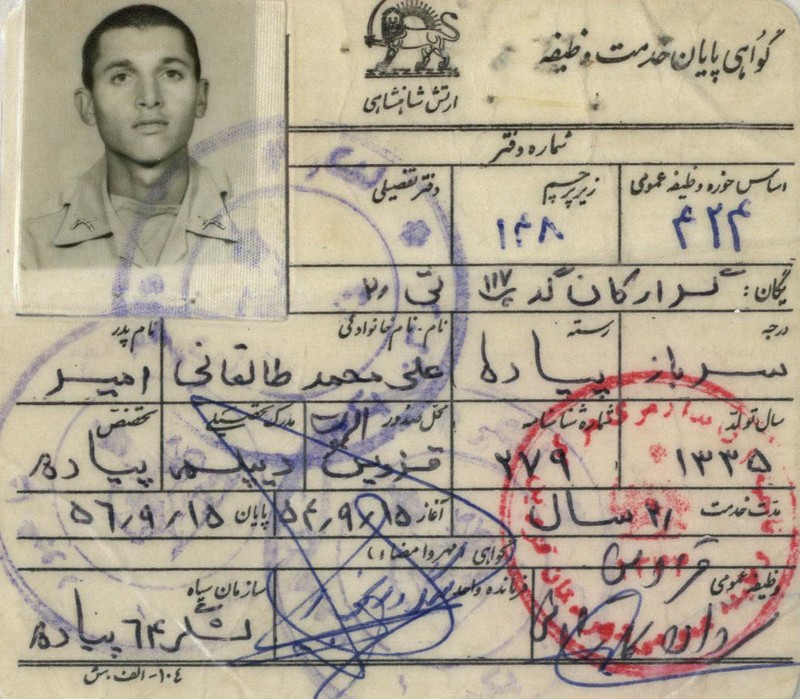 گواهی پایان خدمت وظیفه
ارتش شاهنشاهی
شماره دفتر
اساس حوزه وظیفه عمومی
زیر پرچم
دفتر تفصیلی
۴۲۴
۱۴۸
یگان: گ ارکان گد پ ۱۱۷
درجه
رسته
نام - نام خانوادگی
نام پدر
سرباز
پیاده
علی محمد طالقانی
امیر
سال تولد
شماره شناسنامه
محل صدور
مدرک تحصیلی
تخصص
۱۳۳۵
۲۷۹
قزوین
دیپلمه
پیاده
مدت خدمت ۲ سال
آغاز ۵۴/۹/۱۵
پایان ۵۶/۹/۱۵
گواهی (مهر و امضاء)
وظیفه عمومی
فرمانده واحد
سازمان سپاه
لشگر ۶۴ پیاده
۱۰۴- الف.ش